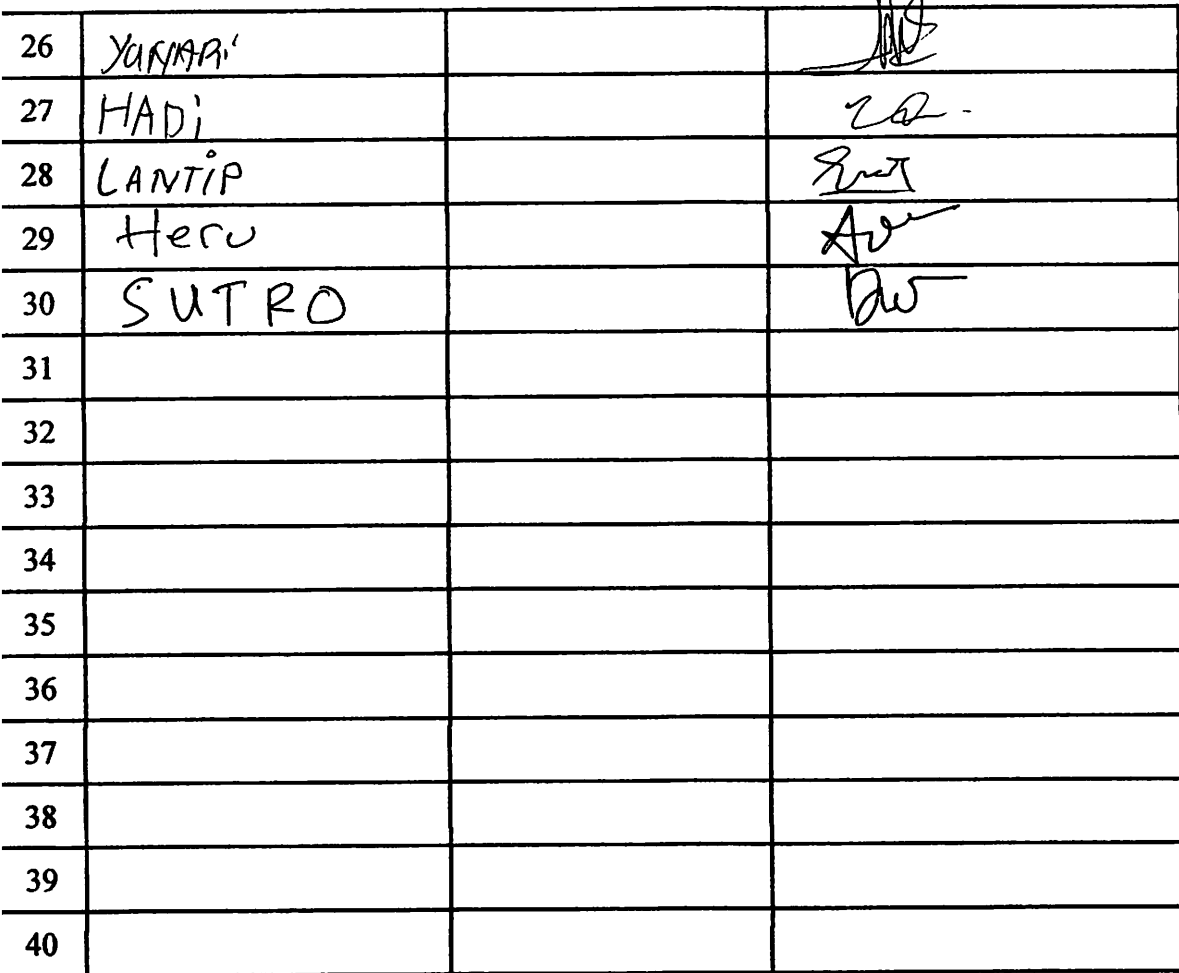 26
27 HADi
28 LANTiP
29 Heru
30 SUTRO
31
32
33
34
35
36
37
38
39
40